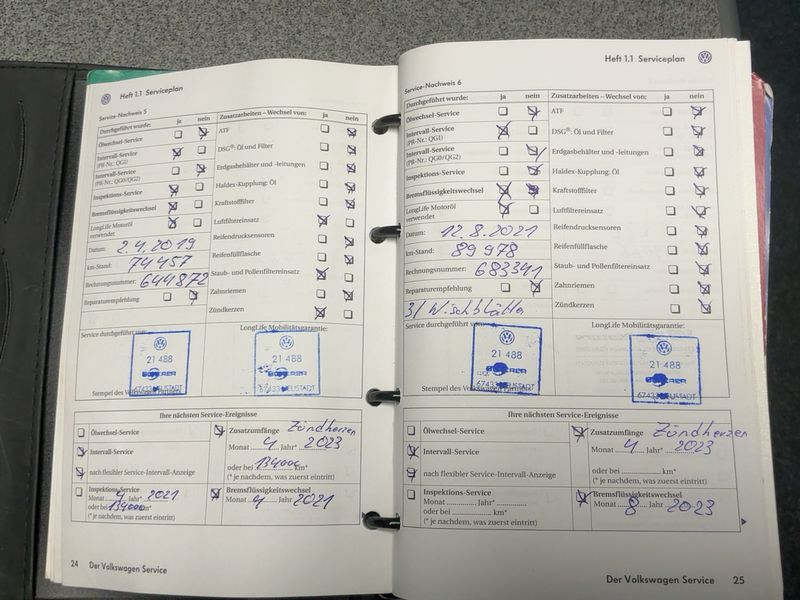 Heft 1.1 Serviceplan
Service-Nachweis 5
Durchgeführt wurde: ja nein
Ölwechsel-Service
Intervall-Service
(PR-Nr.: QG1)
Intervall-Service
(PR-Nr.: QG0/QG2)
Inspektions-Service
Bremsflüssigkeitswechsel
LongLife Motoröl
verwendet
Datum: 2.4.2019
km-Stand: 74457
Rechnungsnummer: 644872
Reparaturempfehlung
Zusatzarbeiten – Wechsel von: ja nein
ATF
DSG®: Öl und Filter
Erdgasbehälter und -leitungen
Haldex-Kupplung: Öl
Kraftstofffilter
Luftfiltereinsatz
Reifendrucksensoren
Reifenfüllflasche
Staub- und Pollenfiltereinsatz
Zahnriemen
Zündkerzen
Service durchgeführt von:
21 488
67433 NEUSTADT
Stempel des Volkswagen Partners
LongLife Mobilitätsgarantie:
21 488
67433 NEUSTADT
Ihre nächsten Service-Ereignisse
Ölwechsel-Service
Intervall-Service
nach flexibler Service-Intervall-Anzeige
Inspektions-Service
Monat 4 Jahr* 2021
oder bei 134000 km*
(* je nachdem, was zuerst eintritt)
Zusatzumfänge Zündkerzen
Monat 4 Jahr* 2023
oder bei 134000 km*
(* je nachdem, was zuerst eintritt)
Bremsflüssigkeitswechsel
Monat 4 Jahr 2021
24 Der Volkswagen Service
Heft 1.1 Serviceplan
Service-Nachweis 6
Durchgeführt wurde: ja nein
Ölwechsel-Service
Intervall-Service
(PR-Nr.: QG1)
Intervall-Service
(PR-Nr.: QG0/QG2)
Inspektions-Service
Bremsflüssigkeitswechsel
LongLife Motoröl
verwendet
Datum: 12.8.2021
km-Stand: 89978
Rechnungsnummer: 683341
Reparaturempfehlung
3/ Wischblätter
Zusatzarbeiten – Wechsel von: ja nein
ATF
DSG®: Öl und Filter
Erdgasbehälter und -leitungen
Haldex-Kupplung: Öl
Kraftstofffilter
Luftfiltereinsatz
Reifendrucksensoren
Reifenfüllflasche
Staub- und Pollenfiltereinsatz
Zahnriemen
Zündkerzen
Service durchgeführt von:
21 488
67433 NEUSTADT
Stempel des Volkswagen Partners
LongLife Mobilitätsgarantie:
21 488
67433 NEUSTADT
Ihre nächsten Service-Ereignisse
Ölwechsel-Service
Intervall-Service
nach flexibler Service-Intervall-Anzeige
Inspektions-Service
Monat ............ Jahr* ............
oder bei ............ km*
(* je nachdem, was zuerst eintritt)
Zusatzumfänge Zündkerzen
Monat 4 Jahr* 2023
oder bei ............ km*
(* je nachdem, was zuerst eintritt)
Bremsflüssigkeitswechsel
Monat 8 Jahr 2023
Der Volkswagen Service 25